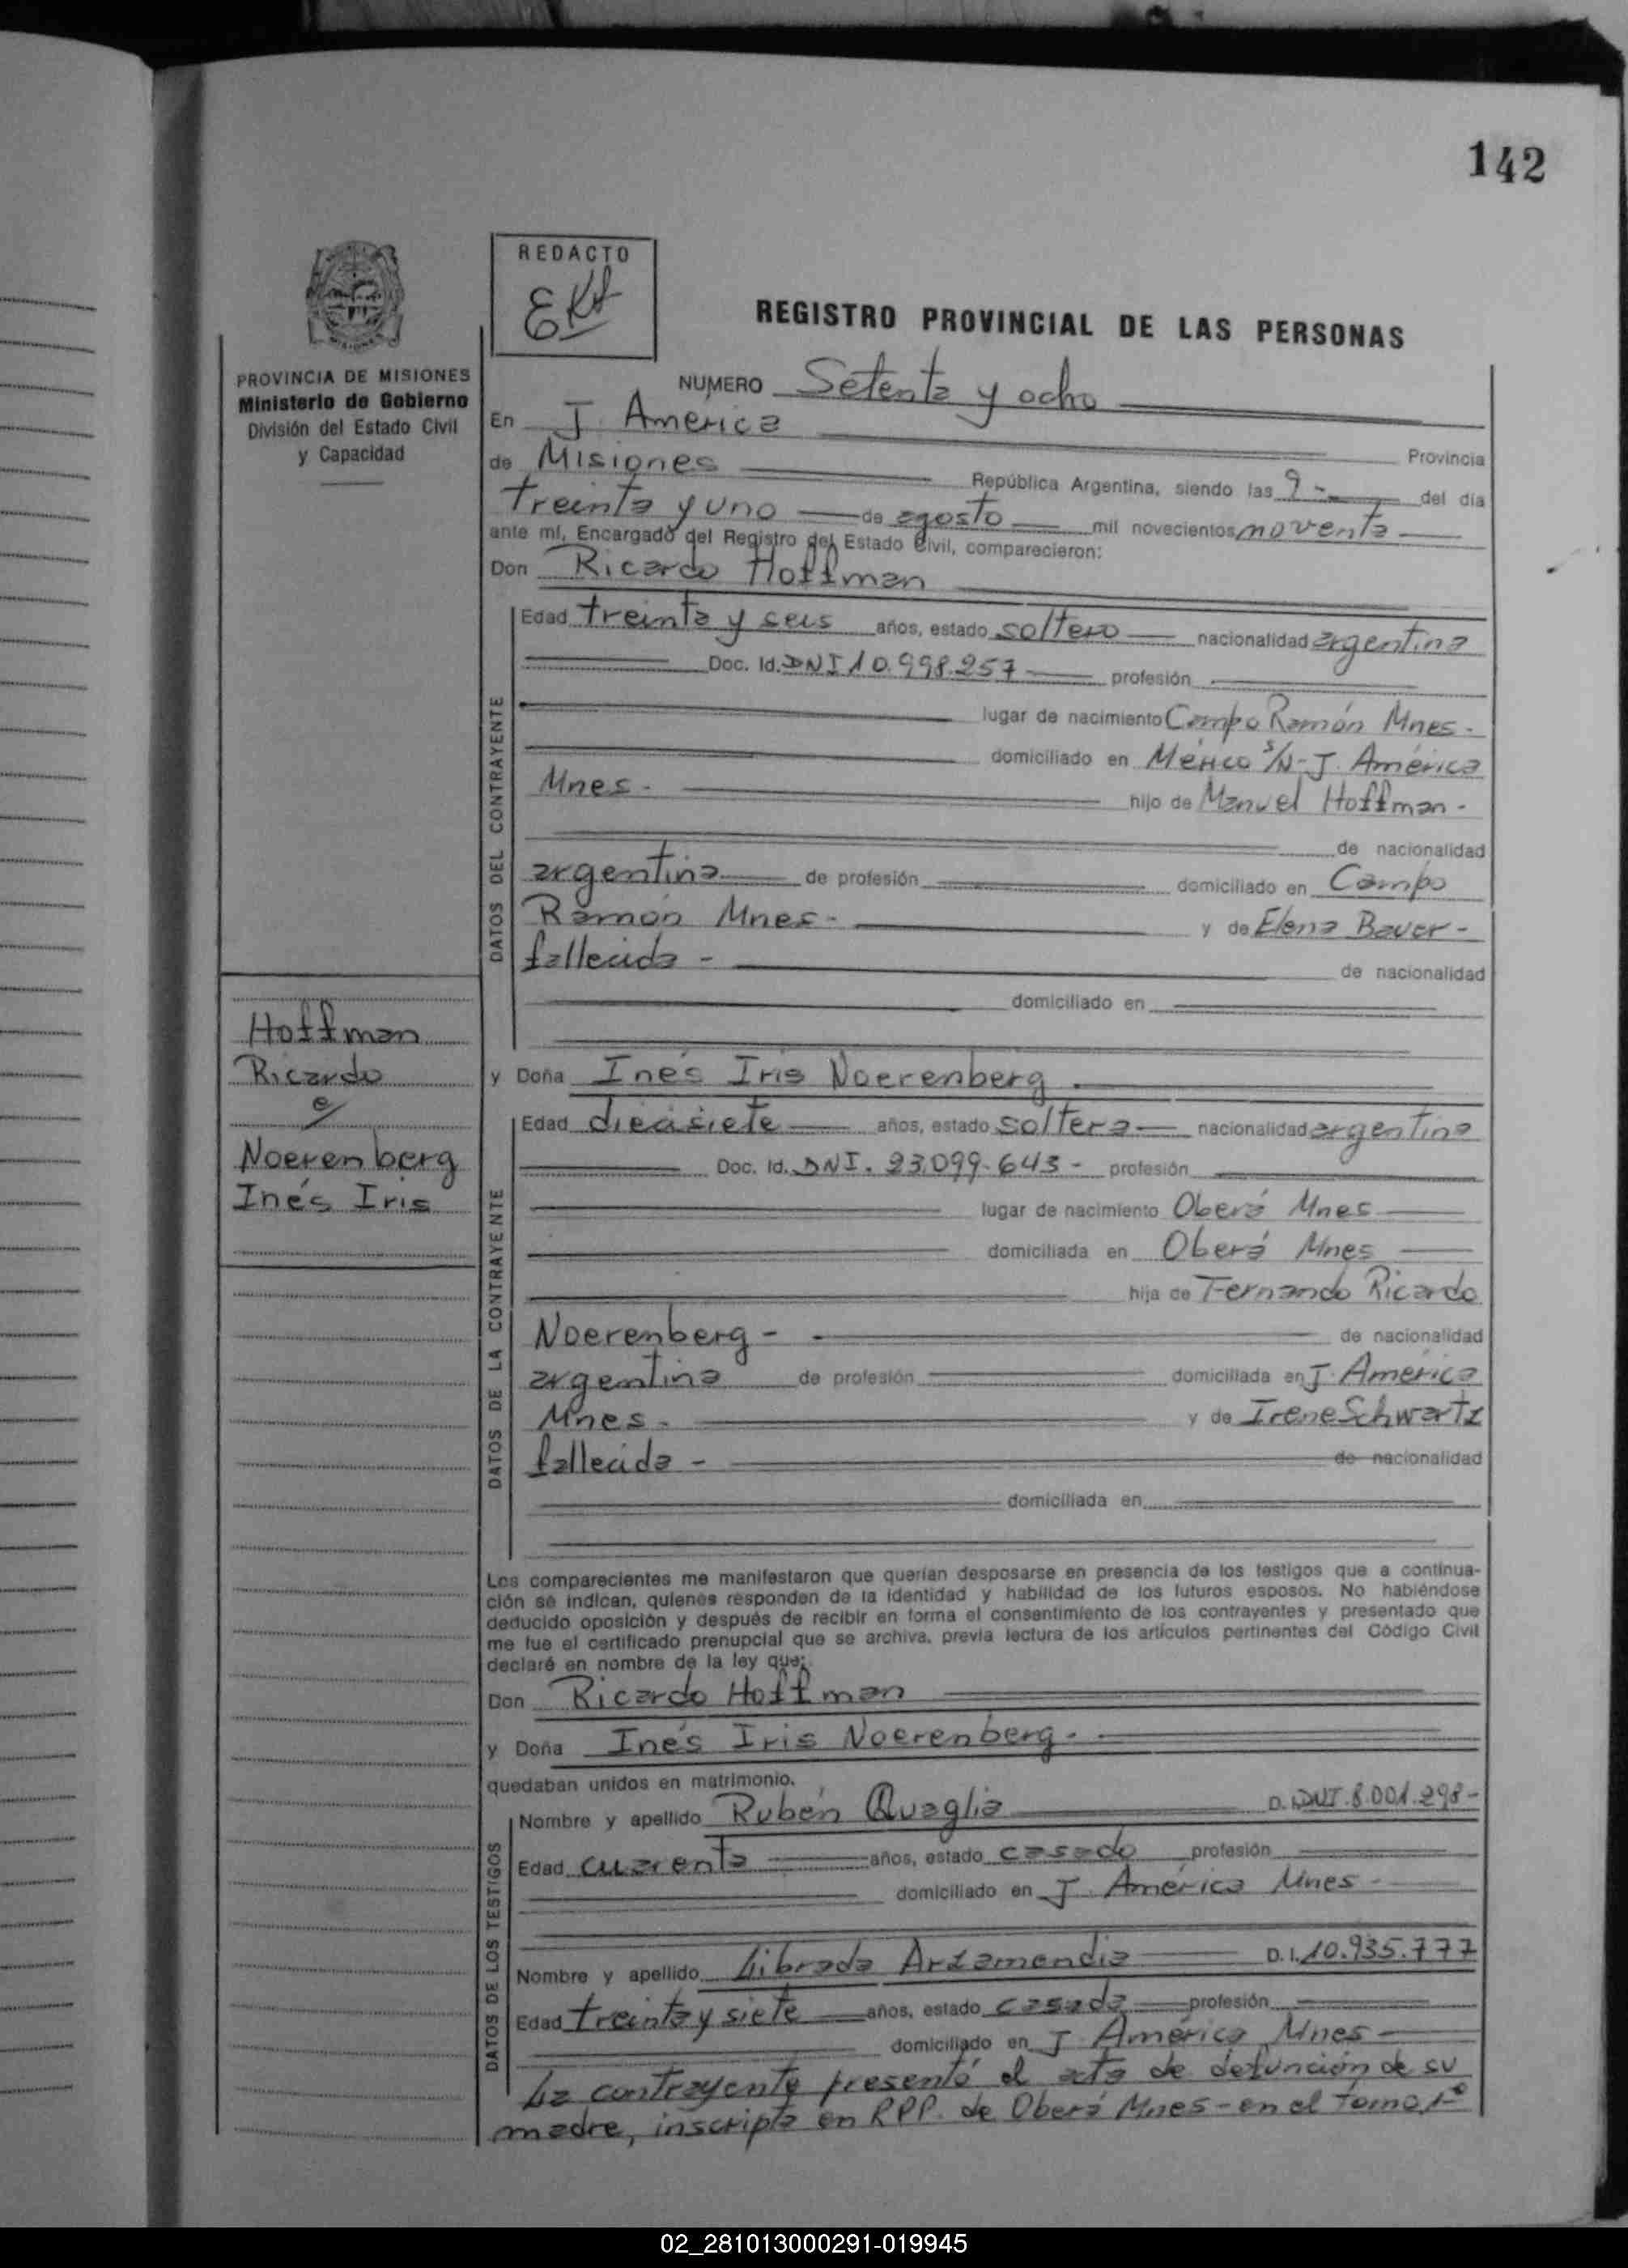 142
REDACTO
REGISTRO PROVINCIAL DE LAS PERSONAS
PROVINCIA DE MISIONES
Ministerio de Gobierno
División del Estado Civil
y Capacidad
NUMERO Setenta y ocho
En J. America
Provincia
de Misiones
República Argentina, siendo las 9 - del día
treinta y uno de agosto mil novecientos noventa
ante mí, Encargado del Registro del Estado Civil, comparecieron:
Don Ricardo Hoffman
DATOS DEL CONTRAYENTE
Edad treinta y seis años, estado soltero nacionalidad argentina
Doc. Id. DNI 10.998.257 profesión
lugar de nacimiento Campo Ramón Mnes.
domiciliado en México S/N - J. América
Mnes. hijo de Manuel Hoffman -
de nacionalidad
argentina de profesión domiciliado en Campo
Ramón Mnes. y de Elena Bauer -
fallecida - de nacionalidad
domiciliado en
Hoffman
Ricardo
c/
Noerenberg
Inés Iris
y Doña Inés Iris Noerenberg.
DATOS DE LA CONTRAYENTE
Edad diecisiete años, estado soltera nacionalidad argentina
Doc. Id. DNI. 23.099.643 - profesión
lugar de nacimiento Oberá Mnes
domiciliada en Oberá Mnes
hija de Fernando Ricardo
Noerenberg - de nacionalidad
argentina de profesión domiciliada en J. América
Mnes. y de Irene Schwartz
fallecida - de nacionalidad
domiciliada en
Los comparecientes me manifestaron que querían desposarse en presencia de los testigos que a continua-
ción se indican, quienes responden de la identidad y habilidad de los futuros esposos. No habiéndose
deducido oposición y después de recibir en forma el consentimiento de los contrayentes y presentado que
me fue el certificado prenupcial que se archiva, previa lectura de los artículos pertinentes del Código Civil
declaré en nombre de la ley que:
Don Ricardo Hoffman
y Doña Inés Iris Noerenberg.
quedaban unidos en matrimonio.
DATOS DE LOS TESTIGOS
Nombre y apellido Rubén Quaglia D.I. DNI. 8.001.298 -
Edad cuarenta años, estado casado profesión
domiciliado en J. América Mnes -
Nombre y apellido Librada Arzamendia D.I. 10.935.777
Edad treinta y siete años, estado casada profesión
domiciliado en J. América Mnes -
La contrayente presentó el acta de defunción de su
madre, inscripta en RPP. de Oberá Mnes - en el Tomo 1º
02_281013000291-019945